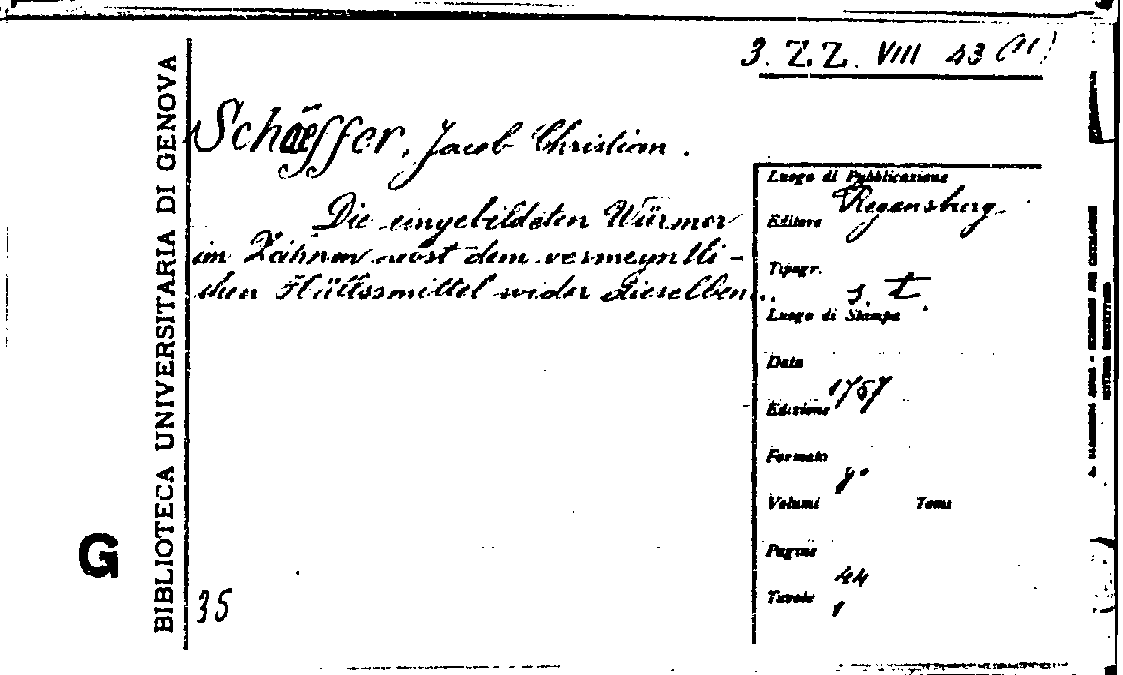 3. Z Z. VIII 43 (11)
Schäffer, Jacob Christian.
Die eingebildeten Würmer
im Zähnen nebst dem vermeyntli-
chen Hülfssmittel wider dieselben...
BIBLIOTECA UNIVERSITARIA DI GENOVA
G
35
Luogo di Pubblicazione
Regensburg
Editore
Tipogr.
s. t.
Luogo di Stampa
Data
1757
Edizione
Formato
8°
Volumi Tomi
Pagine
44
Tavole
1